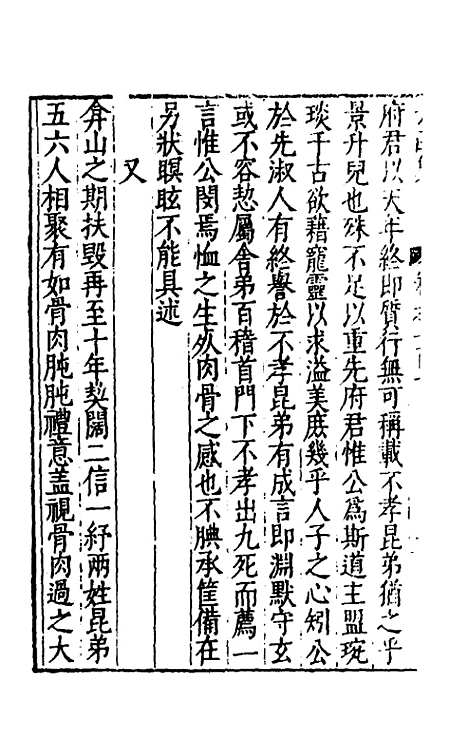 府君以天年終即質行無可稱載不孝昆弟猶之乎
景升兒也殊不足以重先府君惟公為斯道主盟琬
琰千古欲藉寵靈以求溢美庶幾乎人子之心矧公
於先淑人有終譽於不孝昆弟有成言即淵默守玄
或不容愸屬舍弟百稽首門下不孝出九死而薦一
言惟公閔焉恤之生死肉骨之感也不腆承筐備在
另狀瞑眩不能具述
又
弇山之期扶毀再至十年契闊二信一紓兩姓昆弟
五六人相聚有如骨肉肫肫禮意盖視骨肉過之大